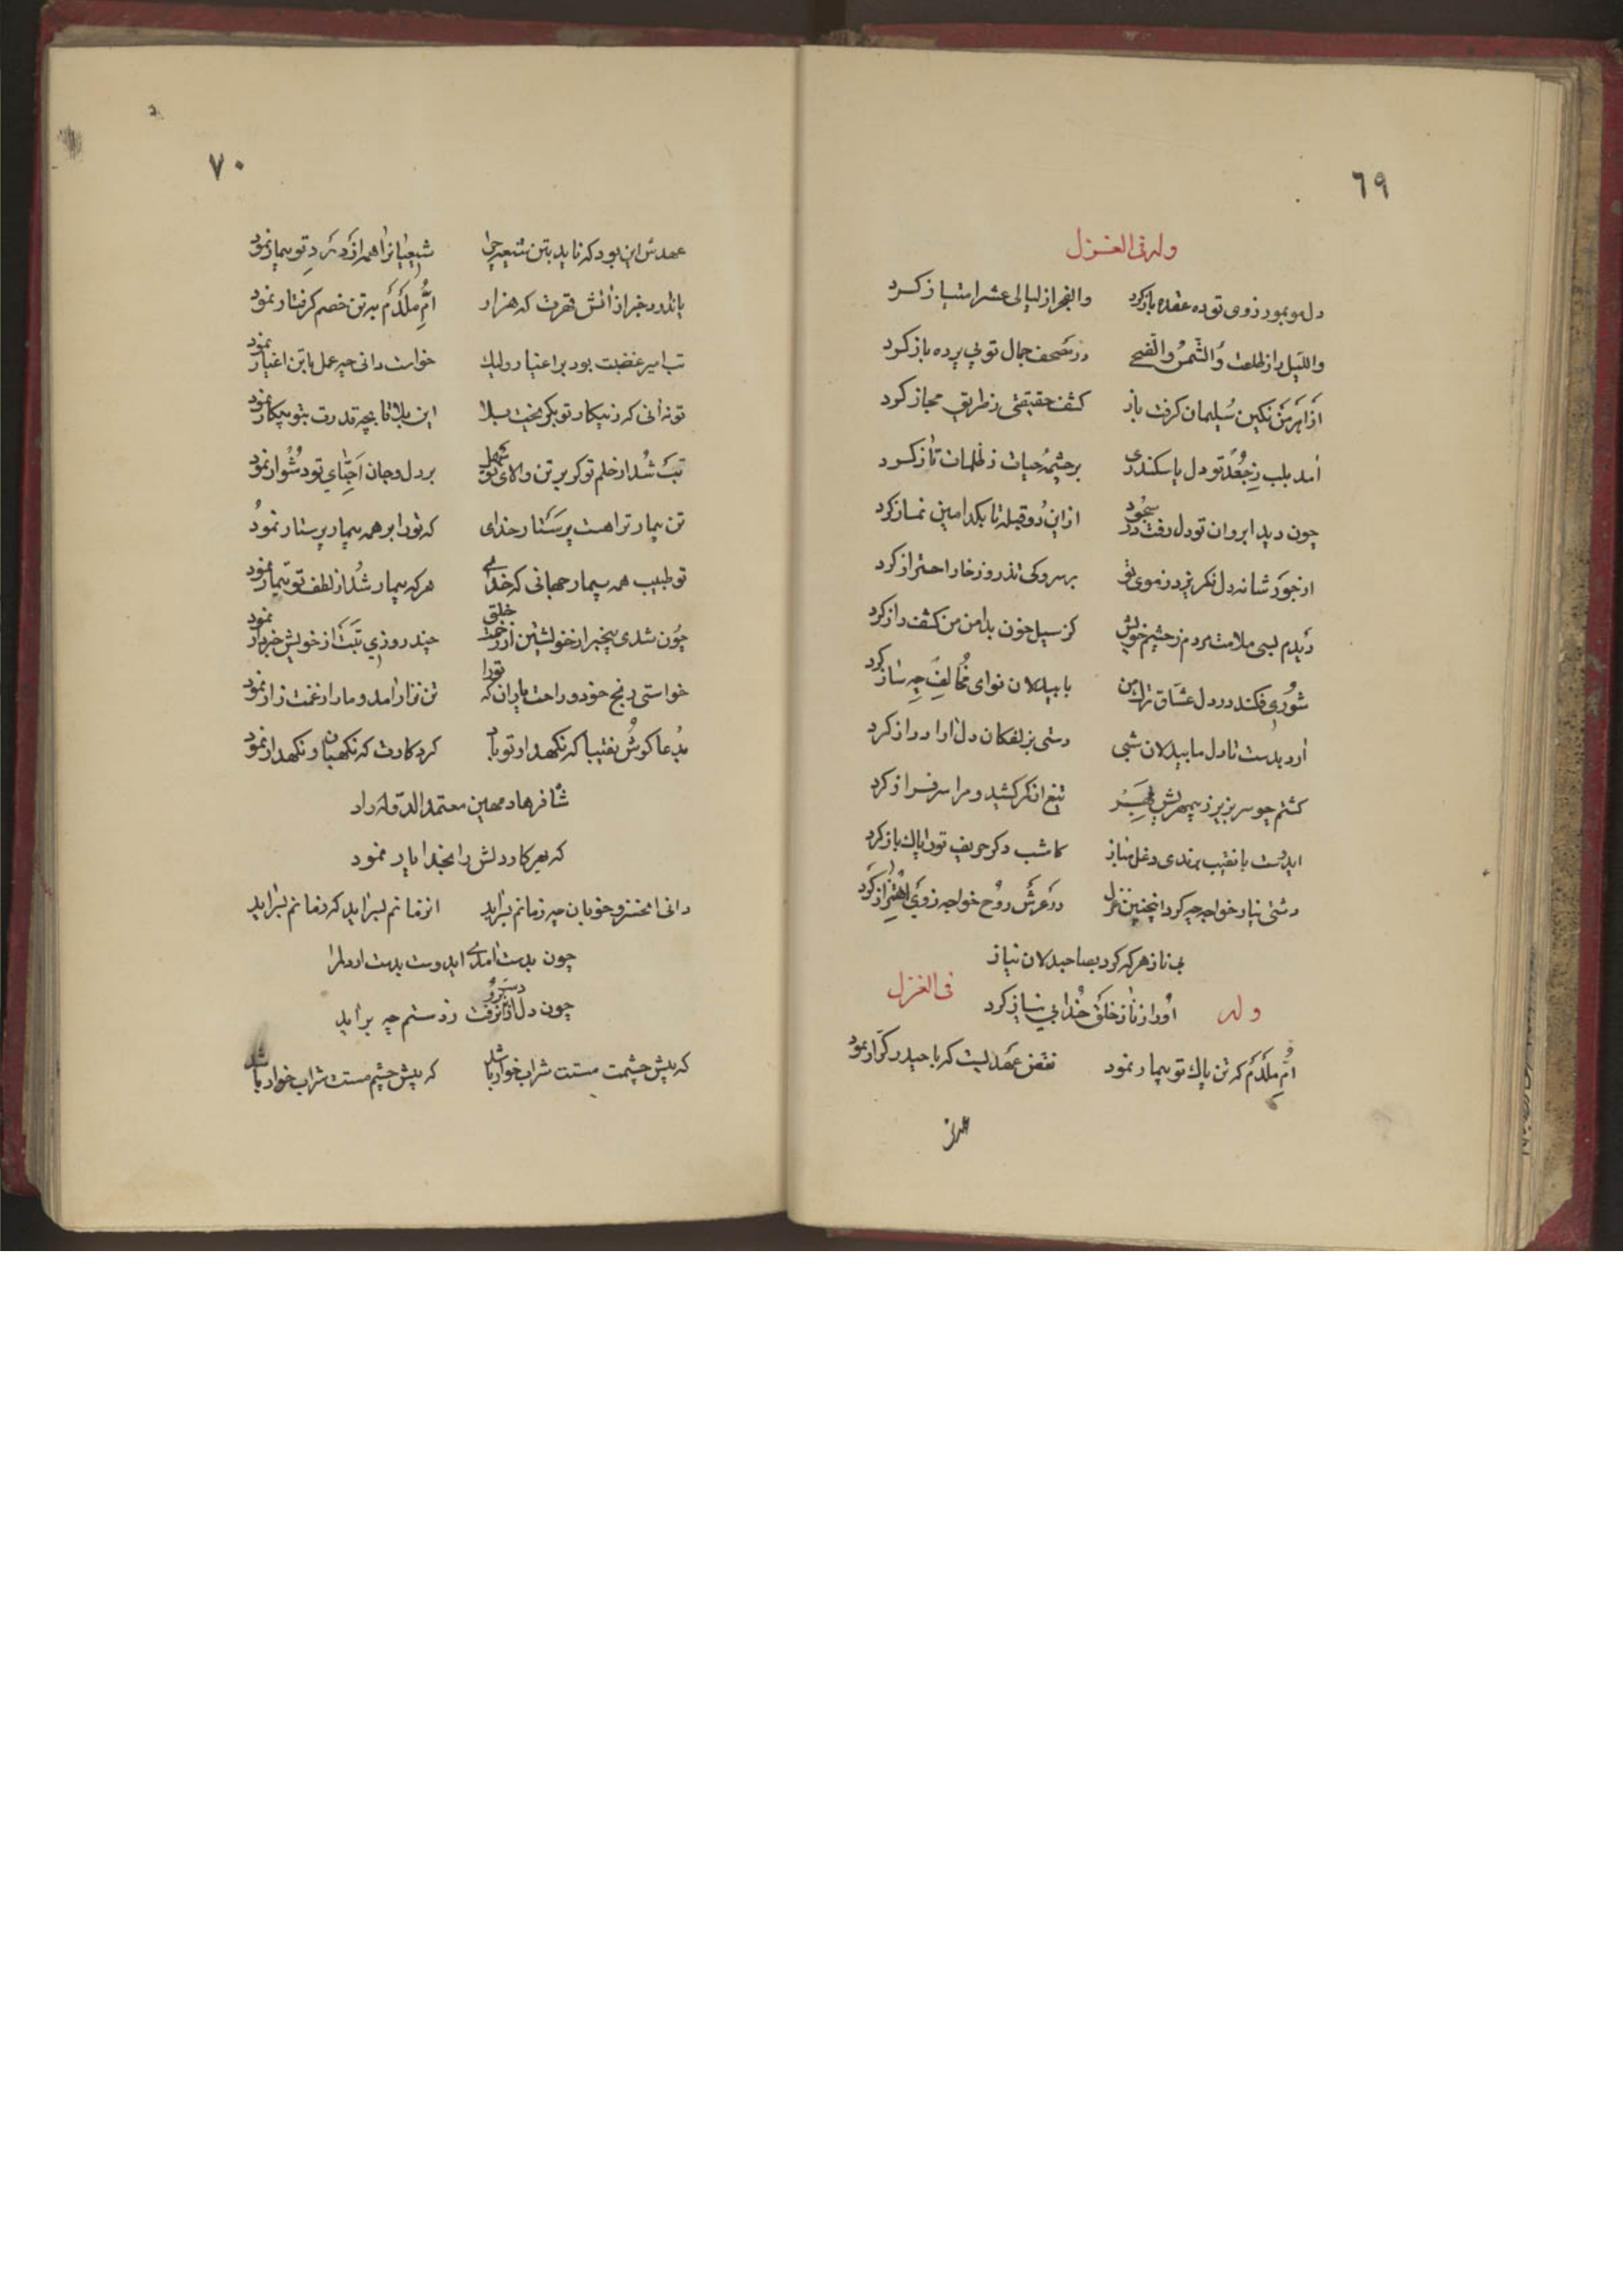 ٦٩
وله فی الغزل
دل مو بمو ز روی تو ده عقده باز کرد والفجر از لیالی عشر امتیاز کرد
واللیل را ز طلعت والشمس والضحی در مصحف جمال تو بی پرده باز کرد
از اهرمن نکین سلیمان کرفت باز کشف حقیقتی ز طریق مجاز کرد
آمد بلب ز جعد تو دل یا سکندری بر چشمه حیات ز ظلمات تاز کرد
چون دید ابروان تو دل رفت در سجود از این دو قبله تا بکدامین نماز کرد
از جور شانه دل نکریزد ز موی تو بر سرو کی تذرو ز خار احتراز کرد
دیدم بسی ملامت مردم ز چشم خویش کز سیل خون بدامن من کشف راز کرد
شوری فکند در دل عشاق ترک من با بیدلان نوای مخالف چه ساز کرد
آرد بدست تا دل ما بیدلان شبی دستی بزلفکان دل آرا دراز کرد
کشتم چو سر بزیر ز بهرش تیغ از کمر کشید و مرا سرفراز کرد
ایدوست با نقیب برندی دغل مباز کامشب دکر حریف تو را پاک باز کرد
دشتی نیاز خواجه چه کرد اینچنین غزل در عرش روح خواجه ز وی اهتزاز کرد
بی ناز هر که کرد بصاحبدلان نیاز
او را ز ناز خلق خدا بی نیاز کرد
وله فی الغزل
ام ملدم که تن پاک تو بیمار نمود نقض عهدیست که با حیدر کرار نمود
عهدش
٧٠
عهدش این بود که ناید بتن شیعه چرا شیعیانرا همه از درد تو بیمار نمود
یا ندارد خبر از آتش قهرت که هزار ام ملدم به تن خصم کرفتار نمود
تب امیر غضبت بود بر اغیار ولیک خواست دانی چه عمل با تن اغیار نمود
تو نه آنی که ز پیکار تو بکریخت بلا این بلا تا بچه قدرت بتو پیکار نمود
تبت شد از حلم تو کر بر تن والای تو سهل بر دل و جان احبای تو دشوار نمود
تن بیمار ترا هست پرستار خدای که تو را بر همه بیمار پرستار نمود
تو طبیب همه بیمار جهانی که خدای هر که بیمار شد از لطف تو تیمار نمود
چون شدی بیخبر از خویشتن از زحمت خلق چند روزی تبت از خویش خبردار نمود
خواستی رنج خود و راحت یاران که تو را تن نزار آمد و ما را ز غمت زار نمود
بدعا کوش نقیبا که نکهدار تو باد کرد کارت که نکهبان و نکهدار نمود
شافرهاد مهین معتمدالدوله راد
که بهر کار دلش را بخدا یار نمود
دانی ای خسرو خوبان چه زمانم بسر آید آنزمانم بسر آید که زمانم بسر آید
چون بدست آمدی ایدوست بدست آر دلمرا
چون دل از دست برفت ز دستم چه بر آید
که پیش چشمت مستت شراب خوار باشد که پیش چشم مستت شراب خوار باشد